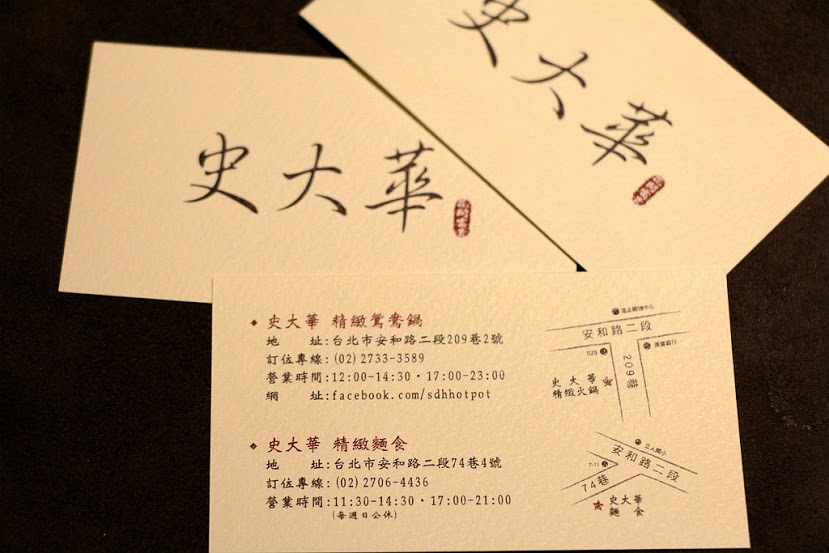 史大華
史大華
史大華 精緻鴛鴦鍋
地 址:台北市安和路二段209巷2號
訂位專線:(02)2733-3589
營業時間:12:00-14:30·17:00-23:00
網 址:facebook.com/sdhhotpot
遠企購物中心
安和路二段
525
209巷
史大華
精緻火鍋
史大華 精緻麵食
地 址:台北市安和路二段74巷4號
訂位專線:(02)2706-4436
營業時間:11:30-14:30·17:00-21:00
(每週日公休)
立人國小
安和路二段
7-11
74巷
史大華
麵 食